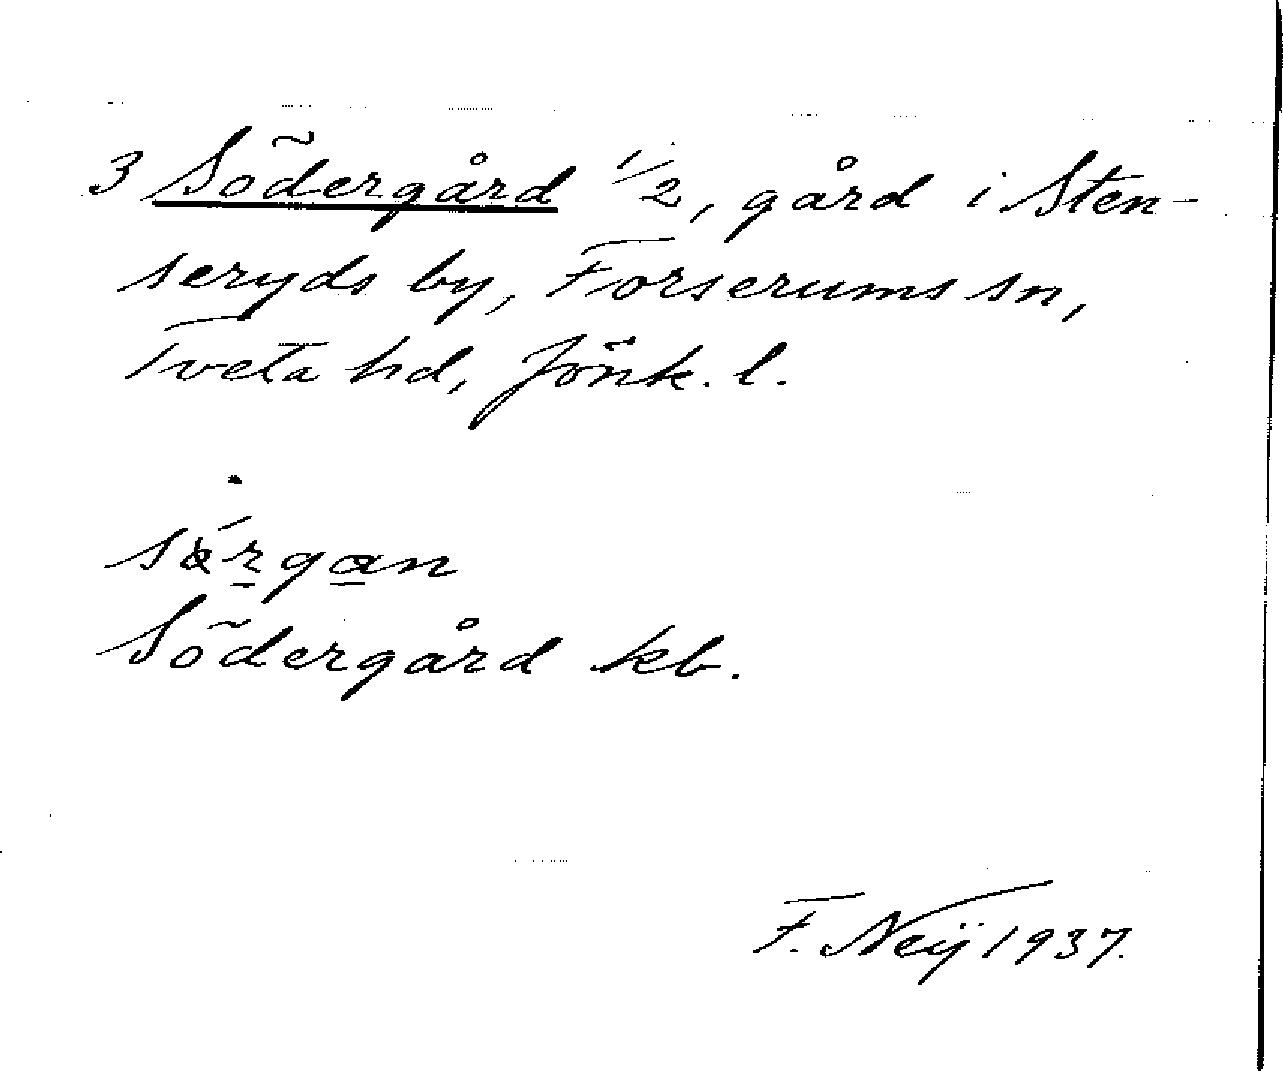 3 Södergård 1/2, gård i Sten-
seryds by, Forserums sn,
Tveta hd, Jönk. l.
Södergård kb.
F. Neij 1937.